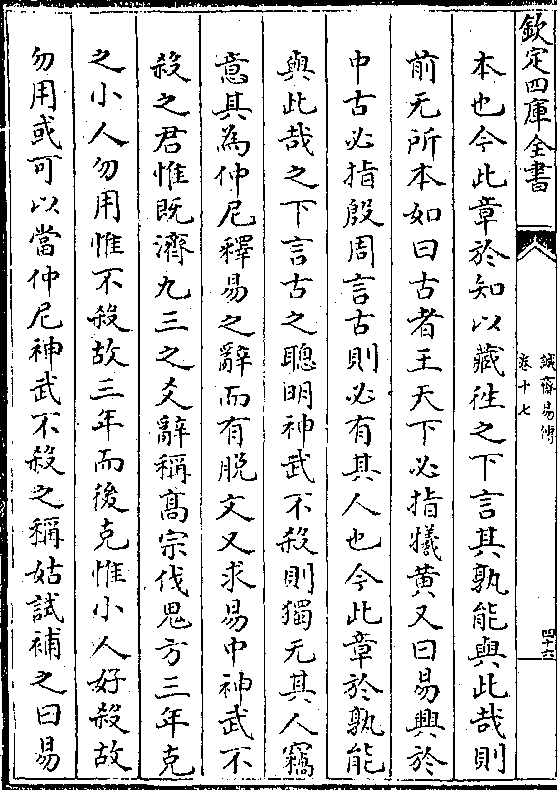 欽定四庫全書
誠齋易傳
卷十七
四十六
本也今此章於知以藏徃之下言其孰能與此哉則
前无所本如曰古者王天下必指犧黄又曰易興於
中古必指殷周言古則必有其人也今此章於孰能
與此哉之下言古之聰明神武不殺則獨无其人竊
意其為仲尼釋易之辭而有脱文又求易中神武不
殺之君惟既濟九三之爻辭稱髙宗伐鬼方三年克
之小人勿用惟不殺故三年而後克惟小人好殺故
勿用或可以當仲尼神武不殺之稱姑試補之曰易